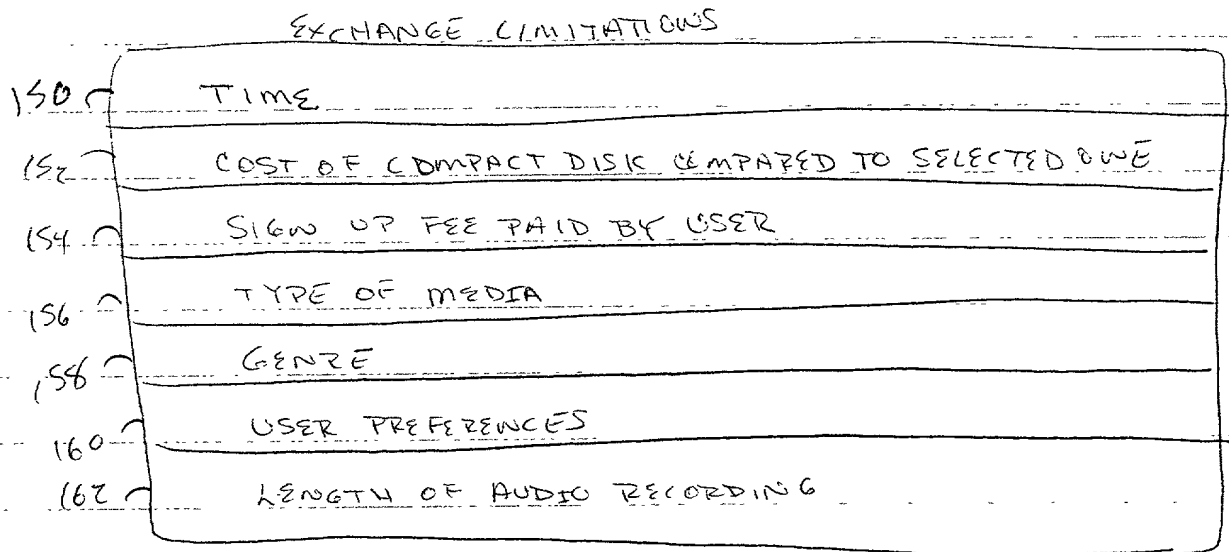 EXCHANGE LIMITATIONS
150 TIME
152 COST OF COMPACT DISK COMPARED TO SELECTED ONE
154 SIGN UP FEE PAID BY USER
156 TYPE OF MEDIA
158 GENRE
160 USER PREFERENCES
162 LENGTH OF AUDIO RECORDING